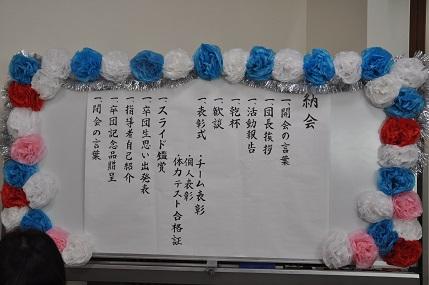 納会
一開会の言葉
一団長挨拶
一活動報告
一乾杯
一歓談
一表彰式
・チーム表彰
個人表彰
・体力テスト合格証
一スライド鑑賞
一卒団生思い出発表
一指導者自己紹介
一卒団記念品贈呈
一閉会の言葉